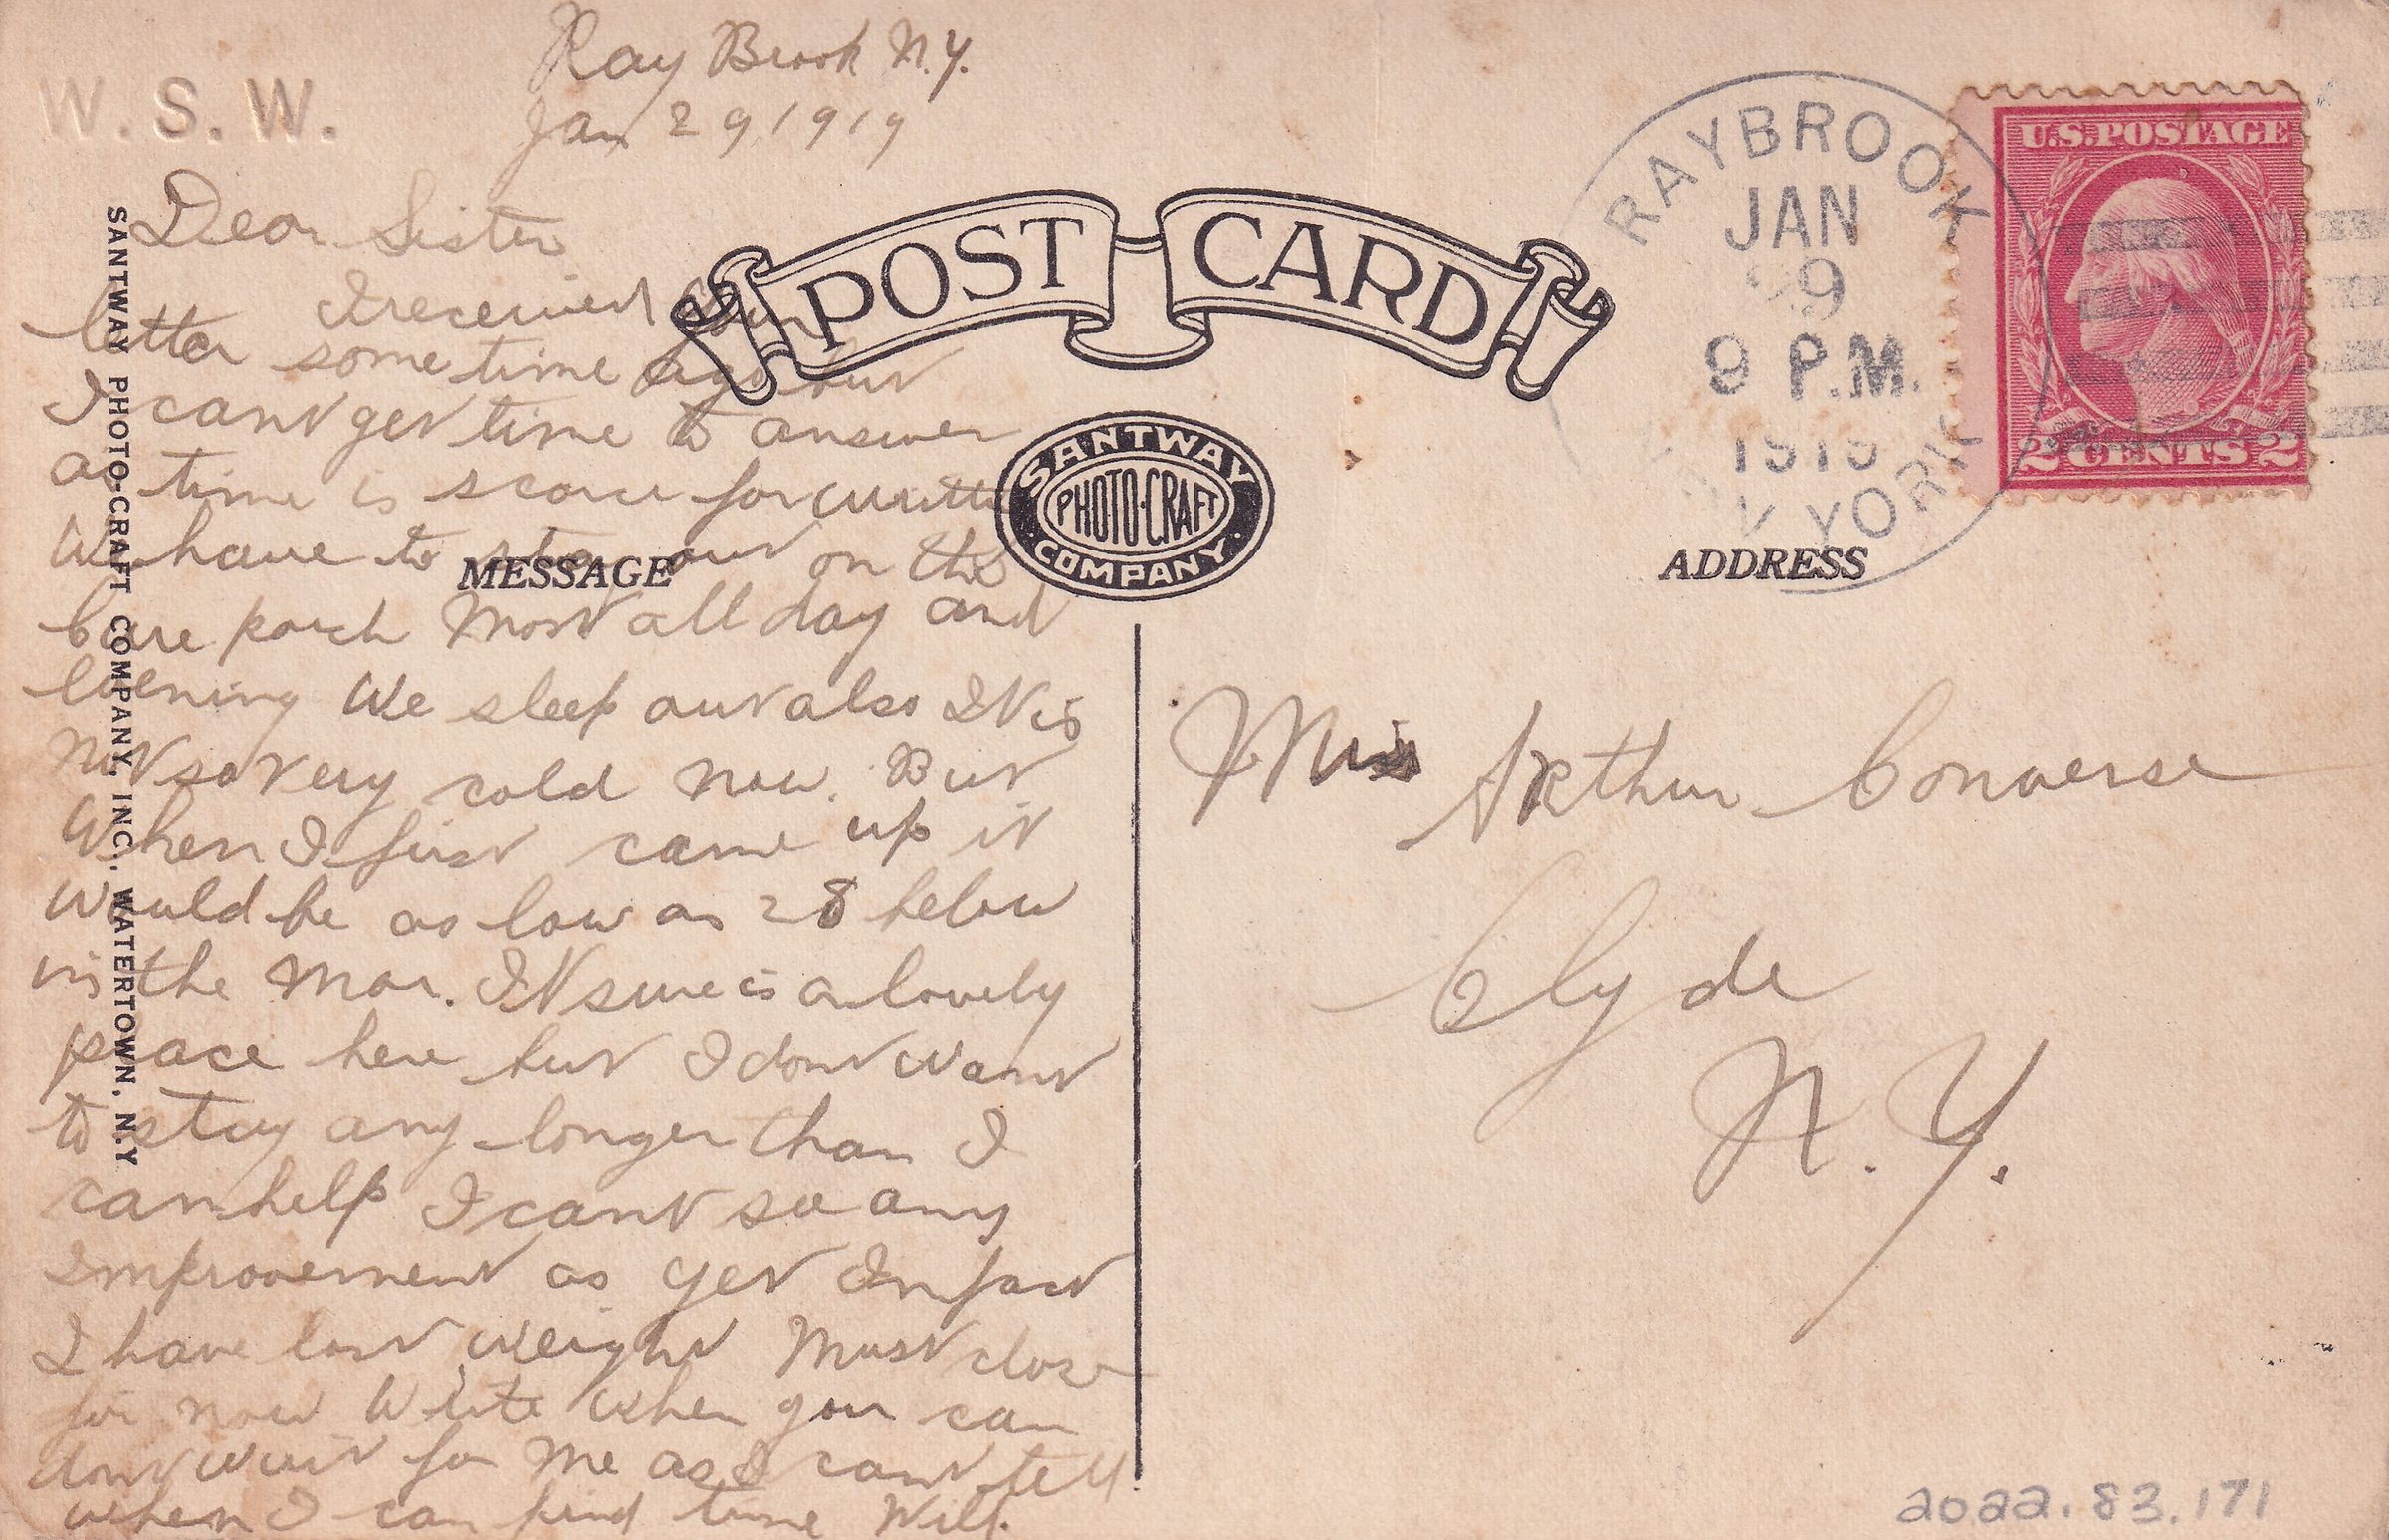 Ray Brook N.Y.
Jan 29, 1919
W. S. W.
Dear Sister
I received your
letter some time ago but
I cant get time to answer
as time is scarce for
We have to stay out on the
Cure porch Most all day and
Evening We sleep out also It is
Not so very cold now. But
When I first came up it
Would be as low as 28 below
in the Mor. It sure is a lovely
place here but I dont want
to stay any longer than I
can help I cant see any
Improvement as yet In fact
I have lost weight Must close
for now Write when you can
dont wait for Me as I cant tell
when I can find time Will.
SANTWAY PHOTO-CRAFT COMPANY, INC., WATERTOWN, N.Y.
POST CARD
SANTWAY
PHOTO-CRAFT
COMPANY
MESSAGE
ADDRESS
RAYBROOK
JAN
29
9 P.M.
1919
NEW YORK
U.S. POSTAGE
2 CENTS 2
Mrs Arthur Converse
Clyde
N.Y.
2022.83.171